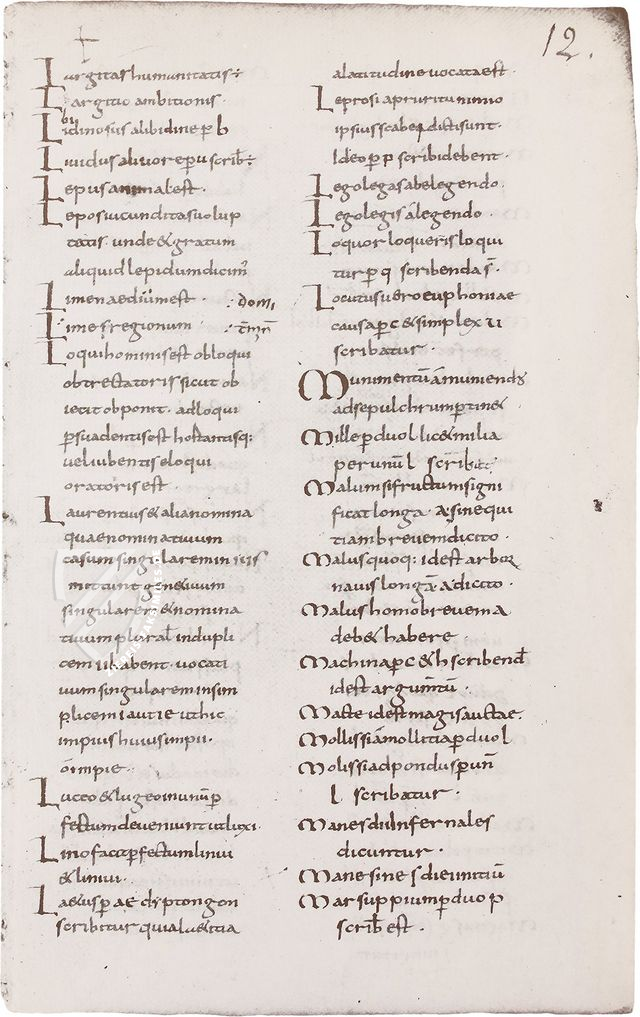 12.
Largitas humanitatis:
Largitio ambitionis.
Libidinosus a libidine per b
Liuidus a liuore per u scrib:
Lepus animal est.
Lepos iucunditas uolup
tatis. unde & gratum
aliquid lepidum dicim̅
Limen aedium est. :domi,
Limes regionum :
Loqui hominis est obloqui
obtrectatoris sicut ob
iecit obponit. adloqui
p̱suadentis est hortantisq:
uel iubentis eloqui
oratoris est.
Laurentius & alia nomina
quae nominatiuum
casum singularem in ius
mittunt genetiuum
singularem & nomina
tiuum plural indupli
cem ii habent. uocati
uum singularem in sim
plicem i aut ie ut hic
impius huius impii.
o impie.
Luceo & lugeo in unum p̱
fectum deueniunt ut luxi.
Lino facit p̱fectum liniui
& liniui.
Laetus p̱ ae diptongon
scribitur quia laetitia
a latitudine uocata est.
Leprosi a pruritu nimio
ipsius scabie dicti sunt.
Ideo p̱ p scribi debent.
Lego legas abelegendo.
Lego legis a legendo.
Loquor loqueris loqui
tur p̱ q scribenda s̅.
Locutus uero euphoniae
causa p̱ c & simplex u
scribatur
Munimentu̅ a muniendis
ad sepulchrum p̱tin&
Mille p̱ duo l lic& milia
per unum l scribit:
Malum si fructum signi
ficat longa .a. sin equi
tiam breuem dicito.
Malus quoq: id est arbor
nauis longa̅ .a. dicito.
Malus homo breuem a
deb& habere.
Machina p̱ c & h scribend
id est argum̅tu̅.
Macte id est magis auctae.
Mollissia̅ mollitia p̱ duo l
Molis si ad pondus p̱ un̅
l scribatur.
Manes dii Infernales
dicuntur.
Mane sine s diei initiu̅
Marsuppium p̱ duo p
scrib est.